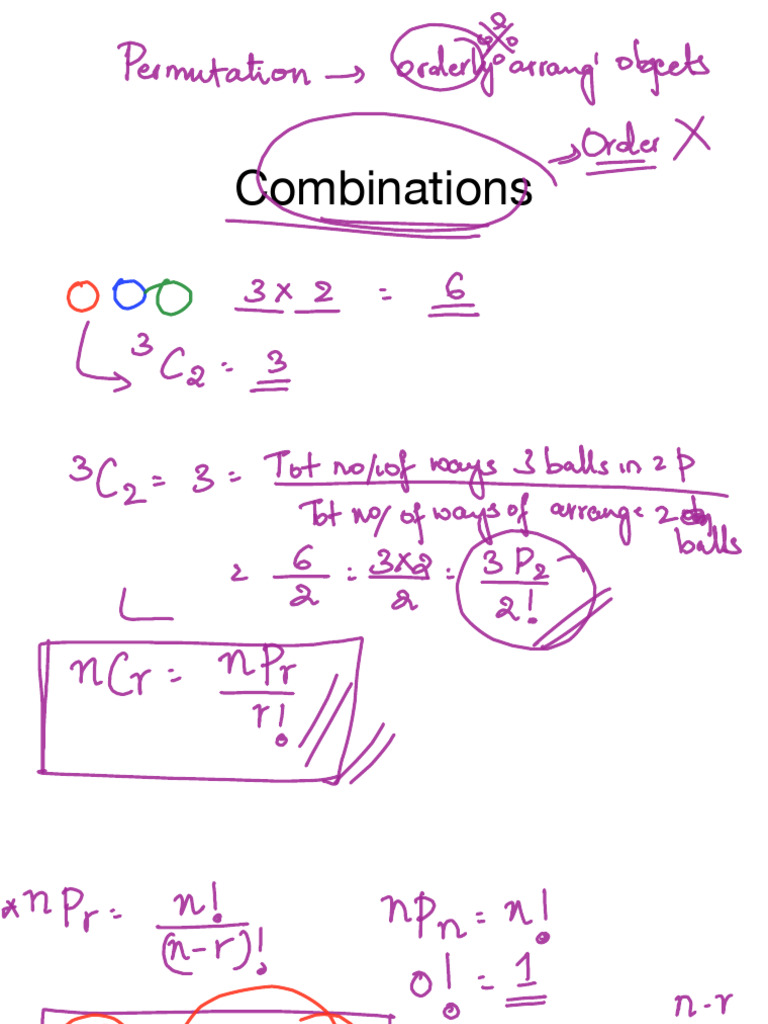 Permutation → orderly arrang' objects
Combinations ⇒ Order X
3 x 2 = 6
³C₂ = 3
³C₂ = 3 = Tot no/: of ways 3 balls in 2 P
Tot no/ of ways of arrange 2
balls
= 6/2 = 3x2/2 = 3P₂/2!
nCr = nPr/r!
*nPr = n!/(n-r)! nPn = n!
0! = 1
n-r